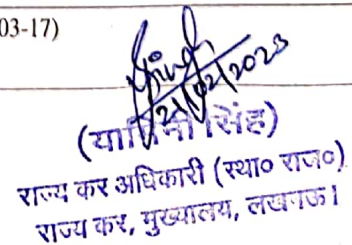 03-17)
21/02/2023
(यामिनी सिंह)
राज्य कर अधिकारी (स्था० राज०)
राज्य कर, मुख्यालय, लखनऊ।